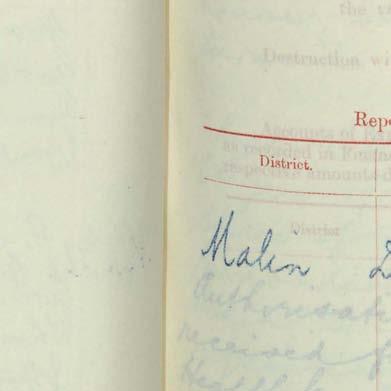 the
Destruction wi
Repo
Accounts of
as recorded in
respective amounts
District.
District
Malin
Authorisati
received